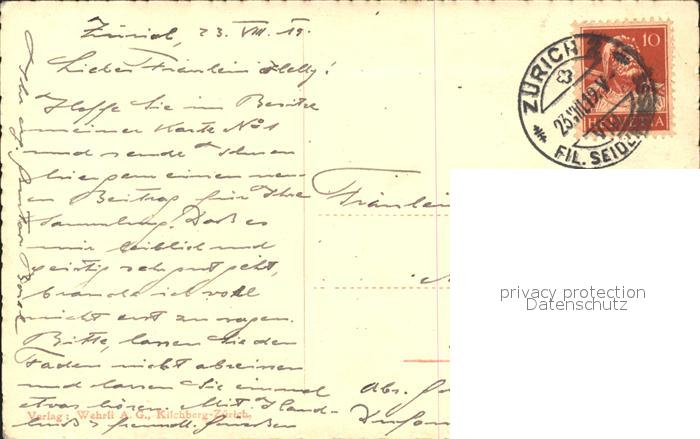 Zürich, 23. VIII. 19.
Liebes Fräulein Helly!
Hoffe Sie im Besitze
meiner Karte No 1
und sende Ihnen
hier gern einen neu-
en Beitrag für Ihre
Sammlung. Daß es
mir leiblich und
geistig sehr gut geht,
brauche ich wohl
nicht erst zu sagen.
Bitte, lassen Sie den
Faden nicht abreissen
und lassen Sie einmal
etwas hören. Mit Hand-
kuß & freundl.
Ihr erg.
Fräulein
Abs.
Verlag: Wehrli A. G., Kilchberg-Zürich.
10
HELVETIA
ZÜRICH
23.VIII.19.
FIL. SEIDEN
privacy protection
Datenschutz